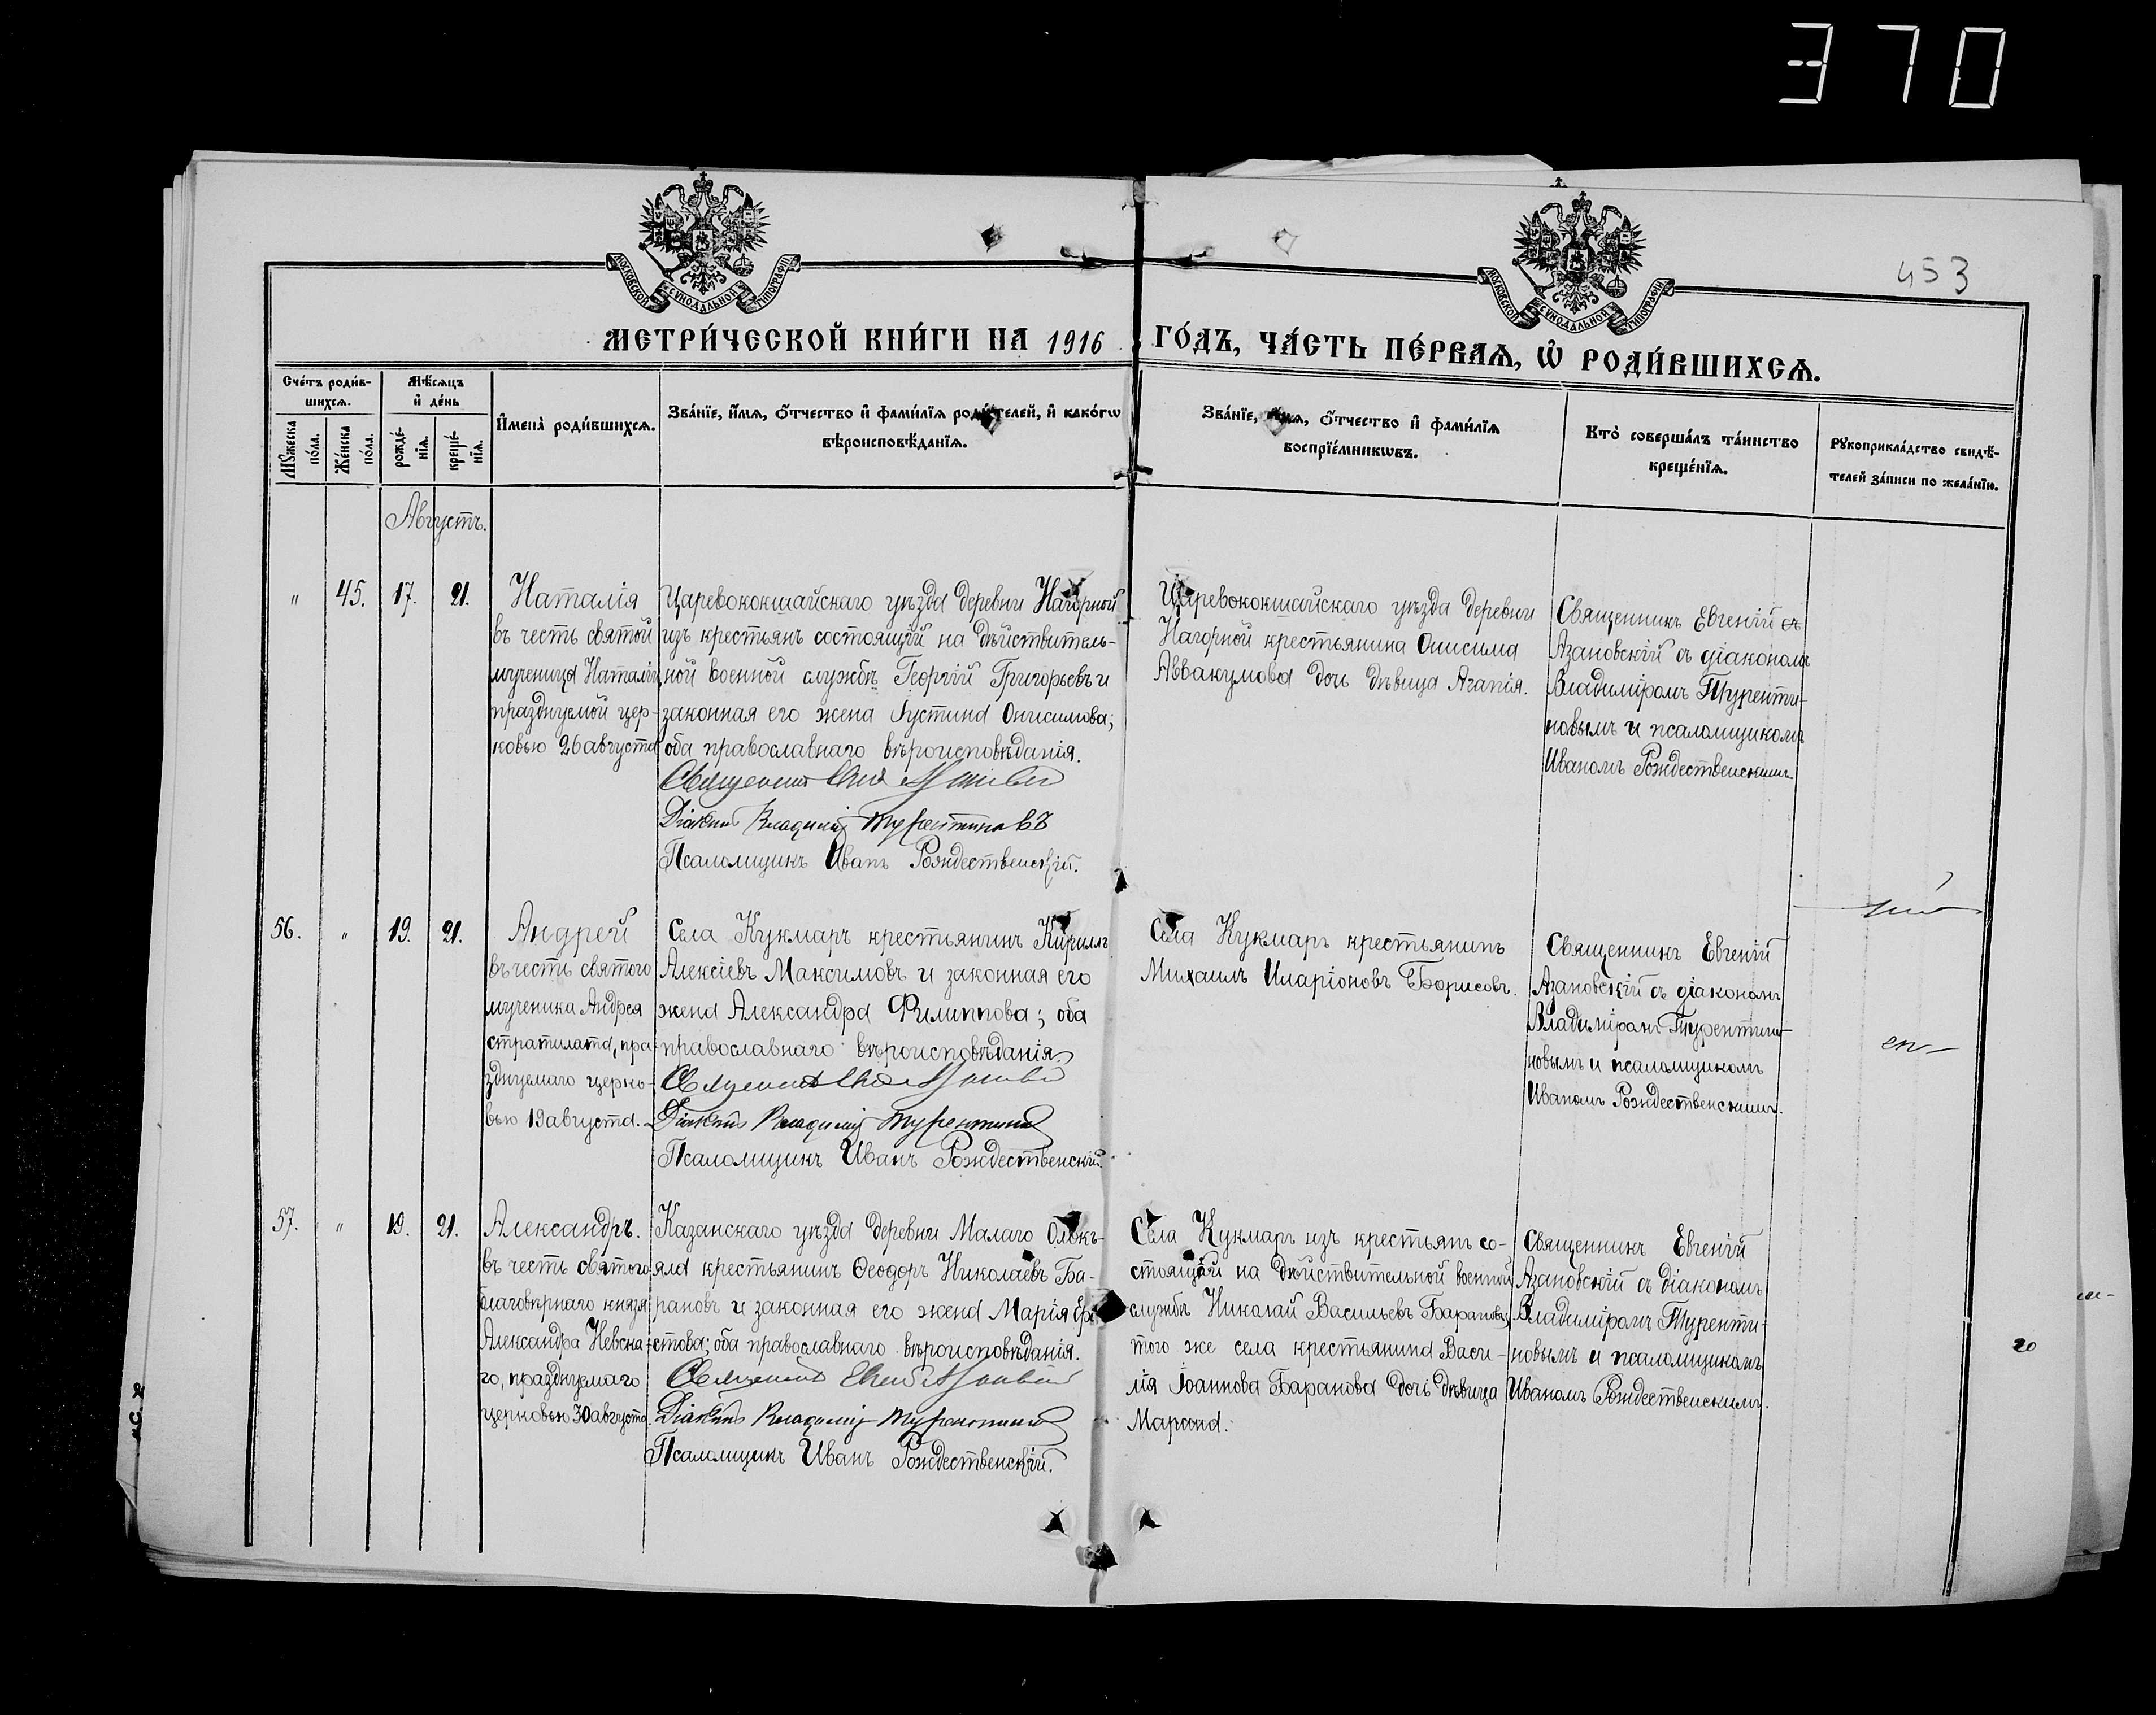 370
МОСКОВСКОЙ СУНОДАЛЬНОЙ ТИПОГРАФІИ
МОСКОВСКОЙ СУНОДАЛЬНОЙ ТИПОГРАФІИ
453
МЕТРИ́ЧЕСКОЙ КНИ́ГИ НА 1916 ГО́ДЪ, ЧА́СТЬ ПЕ́РВАѦ, Ѡ РОДИ́ВШИХСѦ.
Сче́тъ роди́в-
шихсѧ.
Мꙋжеска
по́ла.
Же́нска
по́ла.
Мѣ́сѧцъ
и҆ де́нь
рожде́-
нїѧ.
креще́-
нїѧ.
И҆мена̀ роди́вшихсѧ.
Зва́нїе, и҆́мѧ, ѻ҆́тчество и҆ фами́лїѧ роди́телей, и҆ како́гѡ
вѣроисповѣ́данїѧ.
Зва́нїе, и҆́мѧ, ѻ҆́тчество и҆ фами́лїѧ
воспрїе́мникѡвъ.
Кто̀ соверша́лъ та́инство
креще́нїѧ.
Рꙋкоприкла́дство свидѣ́-
телей за́писи по жела́нїю.
Августъ.
" 45. 17. 21.
Наталія
въ честь святой
мученицы Наталіи,
празднуемой цер-
ковью 26 августа
Царевококшайскаго уѣзда деревни Нагорной
изъ крестьянъ состоящій на дѣйствитель-
ной военной службѣ Георгій Григорьевъ и
законная его жена Іустина Онисимова;
оба православнаго вѣроисповѣданія.
Священникъ
Діаконъ Владимір Турентиновъ
Псаломщикъ Иванъ Рождественскій.
Царевококшайскаго уѣзда деревни
Нагорной крестьянина Онисима
Аввакумова дочь дѣвица Агапія.
Священникъ Евгеній съ
Азановскій съ діакономъ
Владиміромъ Туренти-
новымъ и псаломщикомъ
Иваномъ Рождественскимъ.
56. " 19. 21.
Андрей
въ честь святого
мученика Андрея
стратилата, пра-
зднуемаго церко-
вью 19 августа.
Села Кукмаръ крестьянинъ Кириллъ
Алексіевъ Максимовъ и законная его
жена Александра Филиппова; оба
православнаго вѣроисповѣданія.
Священникъ
Діаконъ Владимір Турентиновъ
Псаломщикъ Иванъ Рождественскій.
Села Кукмаръ крестьянинъ
Михаилъ Иларіоновъ Борисовъ.
Священникъ Евгеній
Азановскій съ діакономъ
Владиміромъ Туренти-
новымъ и псаломщикомъ
Иваномъ Рождественскимъ.
57. " 19. 21.
Александръ.
въ честь святого
благовѣрнаго князя
Александра Невска-
го, празднуемаго
церковью 30 августа.
Казанскаго уѣзда деревни Малаго
яла крестьянинъ Ѳеодоръ Николаевъ Ба-
рановъ и законная его жена Марія
стова; оба православнаго вѣроисповѣданія.
Священникъ
Діаконъ Владимір Турентиновъ
Псаломщикъ Иванъ Рождественскій.
Села Кукмаръ изъ крестьянъ со-
стоящій на дѣйствительной военной
службѣ Николай Васильевъ Барановъ,
того же села крестьянина Васи-
лія Іоаннова Баранова дочь дѣвица
Марѳа.
Священникъ Евгеній
Азановскій съ діакономъ
Владиміромъ Туренти-
новымъ и псаломщикомъ
Иваномъ Рождественскимъ.
20